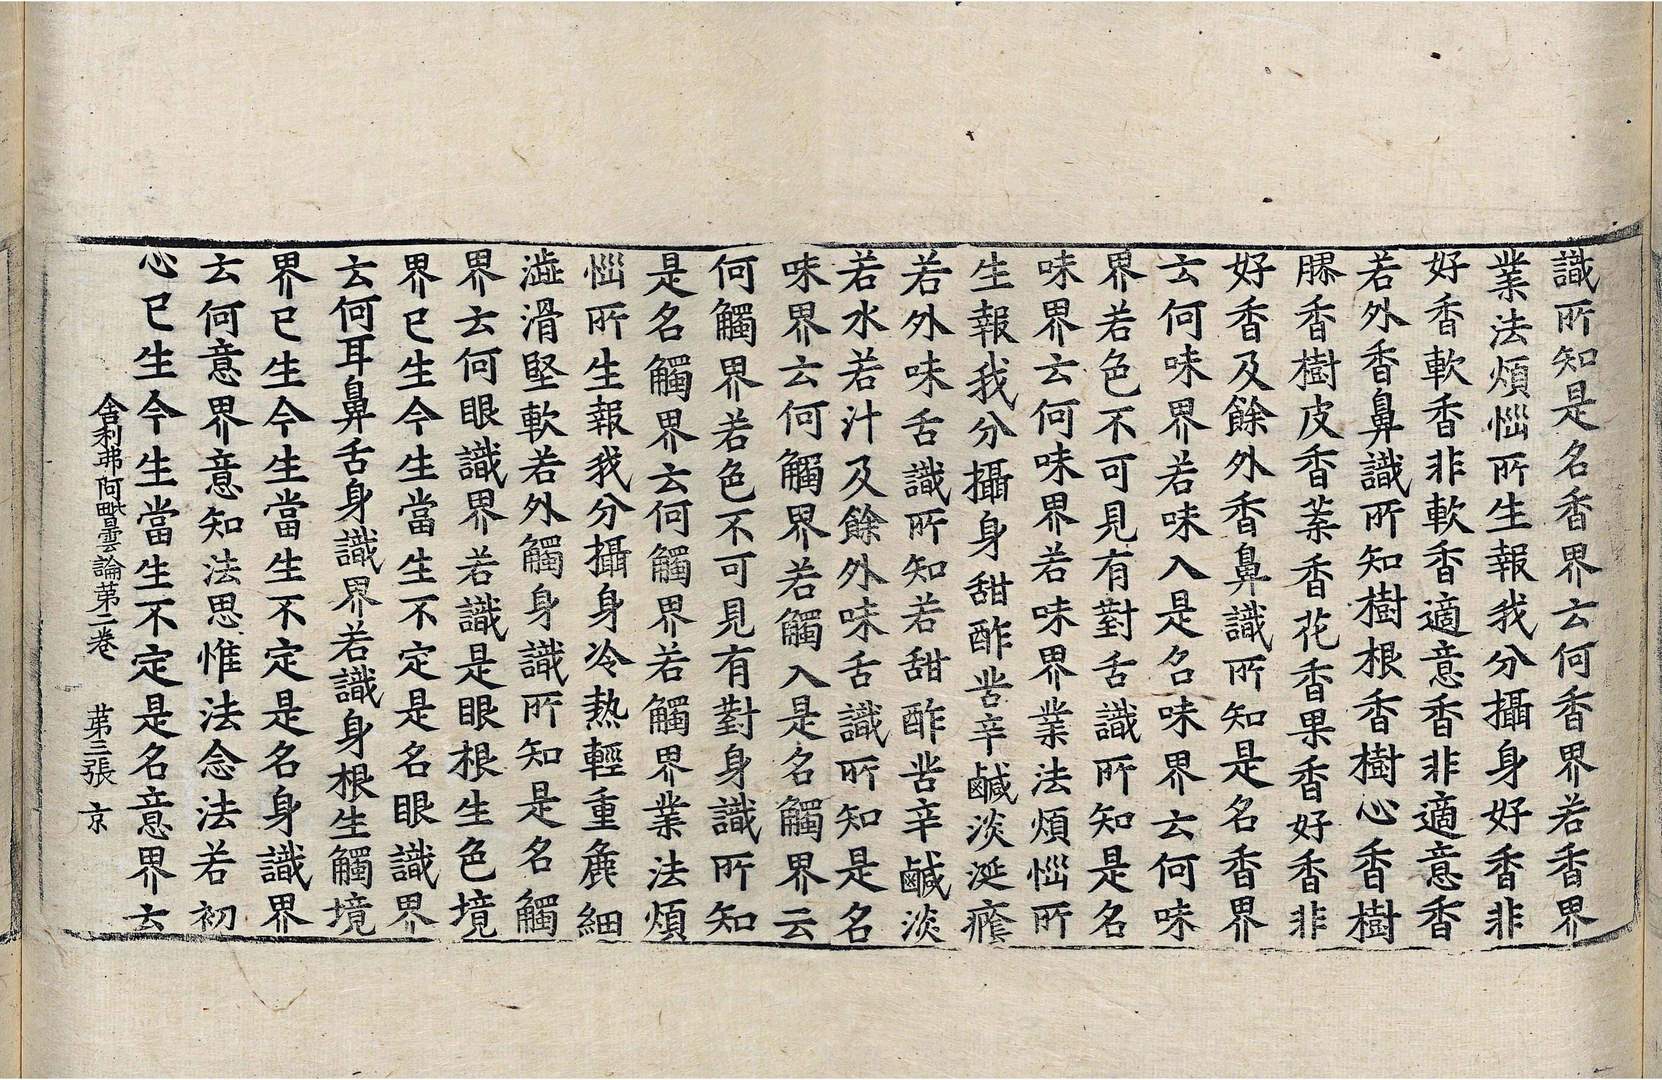 識所知是名香界云何香界若香界
業法煩惱所生報我分攝身好香非
好香軟香非軟香適意香非適意香
若外香鼻識所知樹根香樹心香樹
膠香樹皮香葉香花香果香好香非
好香及餘外香香鼻識所知是名香界
云何味界若味入是名味界云何味
界若色不可見有對舌識所知是名
味界云何味界若味界業法煩惱所
生報我分攝身甜酢苦辛鹹淡涎癊
若外味舌識所知若甜酢苦辛鹹淡
若水若汁及餘外味舌識所知是名
味界云何觸界若觸入是名觸界云
何觸界若色不可見有對身識所知
是名觸界云何觸界若觸界業法煩
惱所生報我分攝身冷熱輕重麁細
澁滑堅軟若外觸身識所知是名觸
界云何眼識界若識是眼根生色境
界已生今生當生不定是名眼識界
云何耳鼻舌身識界若識身根生觸境
界已生今生當生不定是名身識界
云何意界意知法思惟法念法若初
心已生今生當生不定是名意界云
舍利弗阿毗曇論第二卷 第三張 京